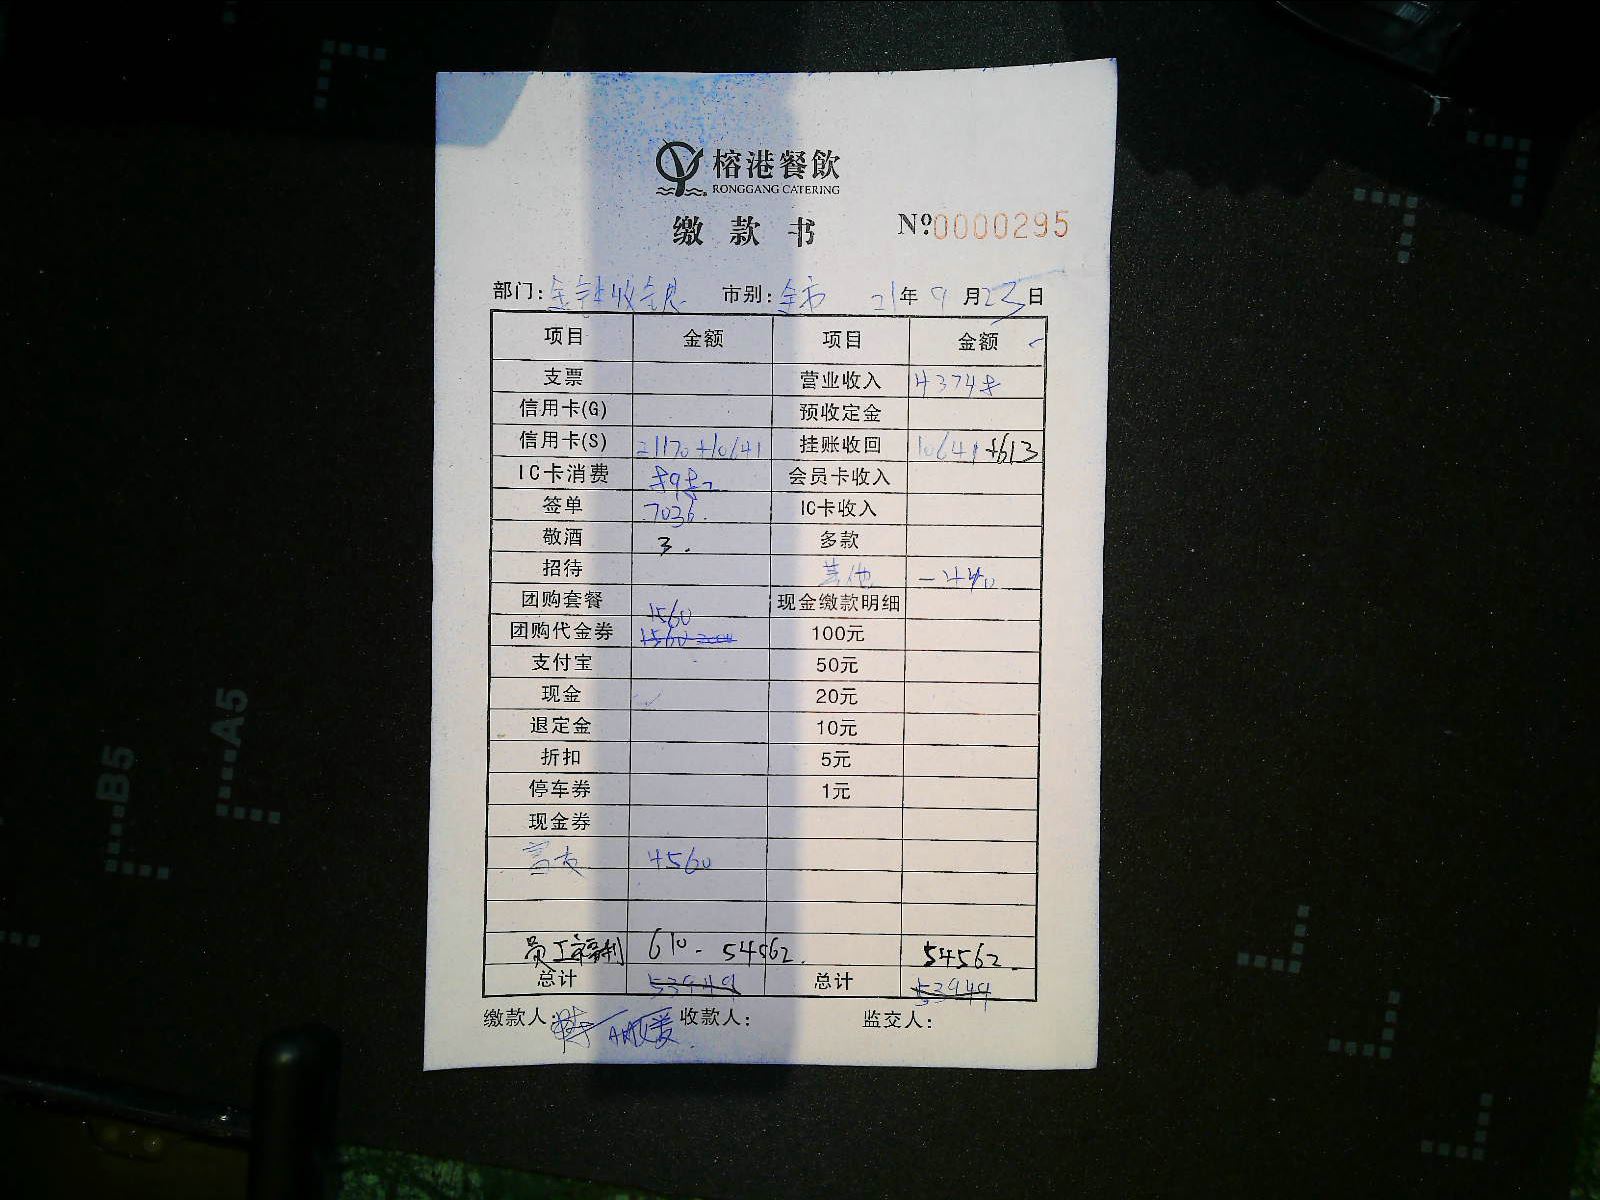 榕港餐飲
RONGGANG CATERING
缴款书 Nº:0000295
部门: 收银 市别: 全市 21年 9月23日
项目 金额 项目 金额
支票 营业收入 43748
信用卡(G) 预收定金
信用卡(S) 21170+10641 挂账收回 10641+613
IC卡消费 8982 会员卡收入
签单 7036. IC卡收入
敬酒 3. 多款
招待 其他 -440
团购套餐 1560 现金缴款明细
团购代金券 1560 100元
支付宝 50元
现金 20元
退定金 10元
折扣 5元
停车券 1元
现金券
富友 4560
员工福利 610- 54562. 54562.
总计 53949 总计 53949
缴款人: 收款人: 监交人:
A5
B5